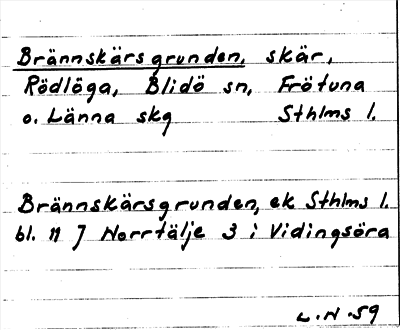 Brännskärsgrunden, skär,
Rödlöga, Blidö sn, Frötuna
o. Länna skg Sthlms l.
Brännskärsgrunden, ek Sthlms l.
bl. 11 J Norrtälje 3 i Vidingsöra
L.N.59